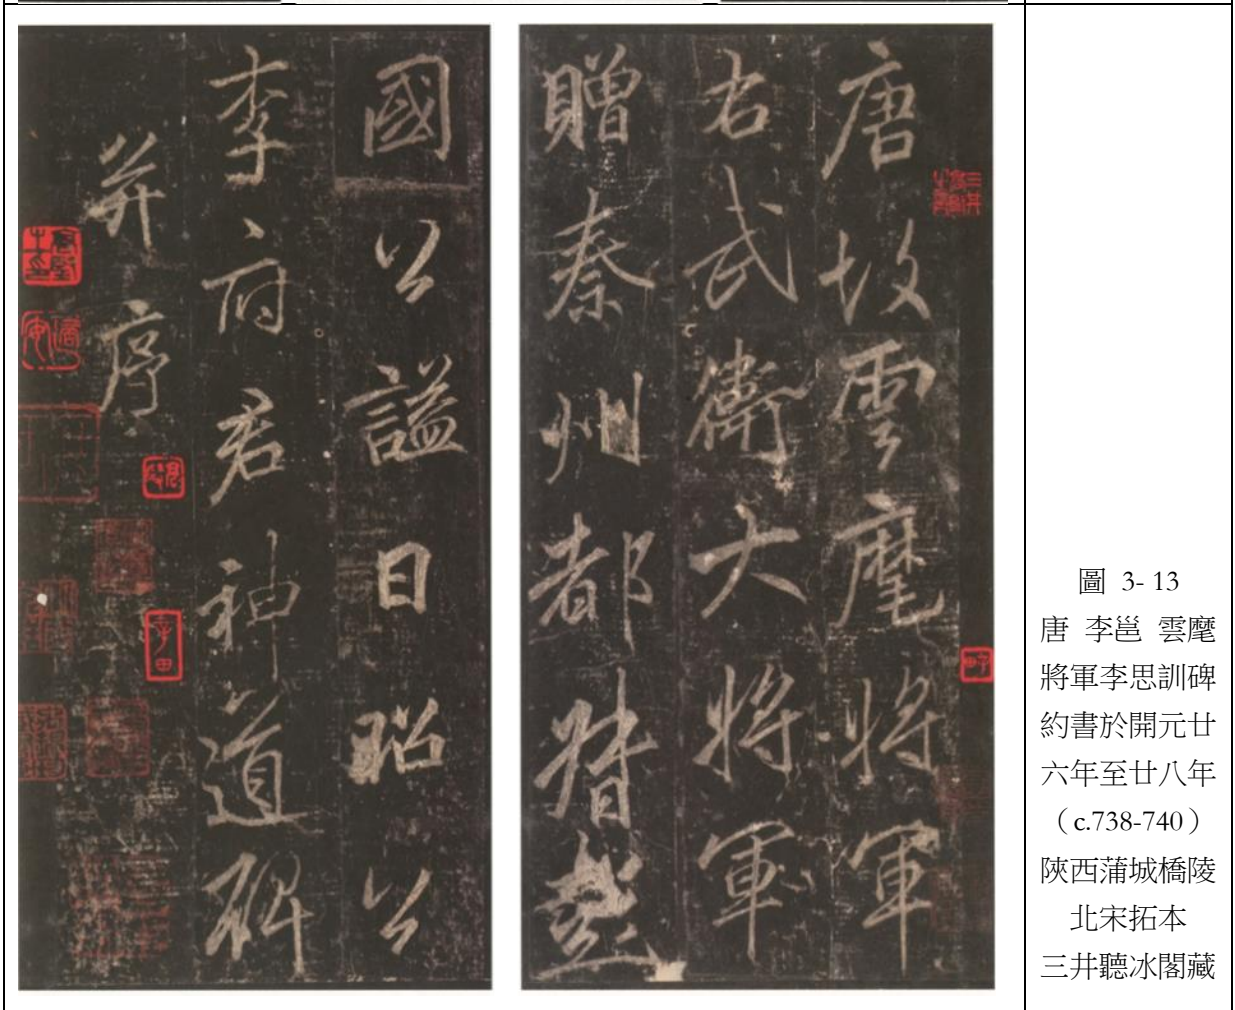 唐故雲麾將軍
右武衛大將軍
贈秦州都督彭
國公謚曰昭公
李府君神道碑
并序
圖 3- 13
唐 李邕 雲麾
將軍李思訓碑
約書於開元廿
六年至廿八年
（c.738-740）
陝西蒲城橋陵
北宋拓本
三井聽冰閣藏